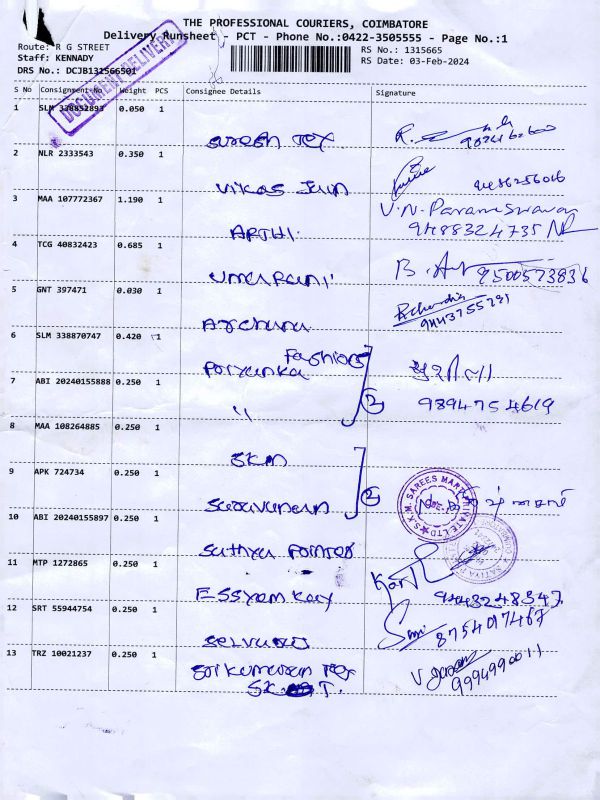 THE PROFESSIONAL COURIERS, COIMBATORE
Delivery Runsheet - PCT - Phone No.:0422-3505555 - Page No.:1
Route: R G STREET
RS No.: 1315665
Staff: KENNADY
RS Date: 03-Feb-2024
DRS No.: DCJB131566501
DOCUMENT DELIVERY
S No Consignment No Weight PCS Consignee Details Signature
1 SLM 338852893 0.050 1 Suresh Tex
2 NLR 2333543 0.350 1 Vikas Jain 9486256016
3 MAA 107772367 1.190 1 ARTHI V.N. Parameswaran
9488324735
4 TCG 40832423 0.685 1 Uma Rani 9500573836
5 GNT 397471 0.030 1 Archana
9443755291
6 SLM 338870747 0.420 1 Priyanka Fashions
7 ABI 20240155888 0.250 1 " 2 9894754619
8 MAA 108264885 0.250 1 SKM
9 APK 724734 0.250 1 Saravanan 2
S.K.M. SAREES MART PRIVATE LTD
10 ABI 20240155897 0.250 1 Sathya
11 MTP 1272865 0.250 1 9443248347
12 SRT 55944754 0.250 1 8754097467
13 TRZ 10021237 0.250 1 Sri Kumaran Tex
9994990011